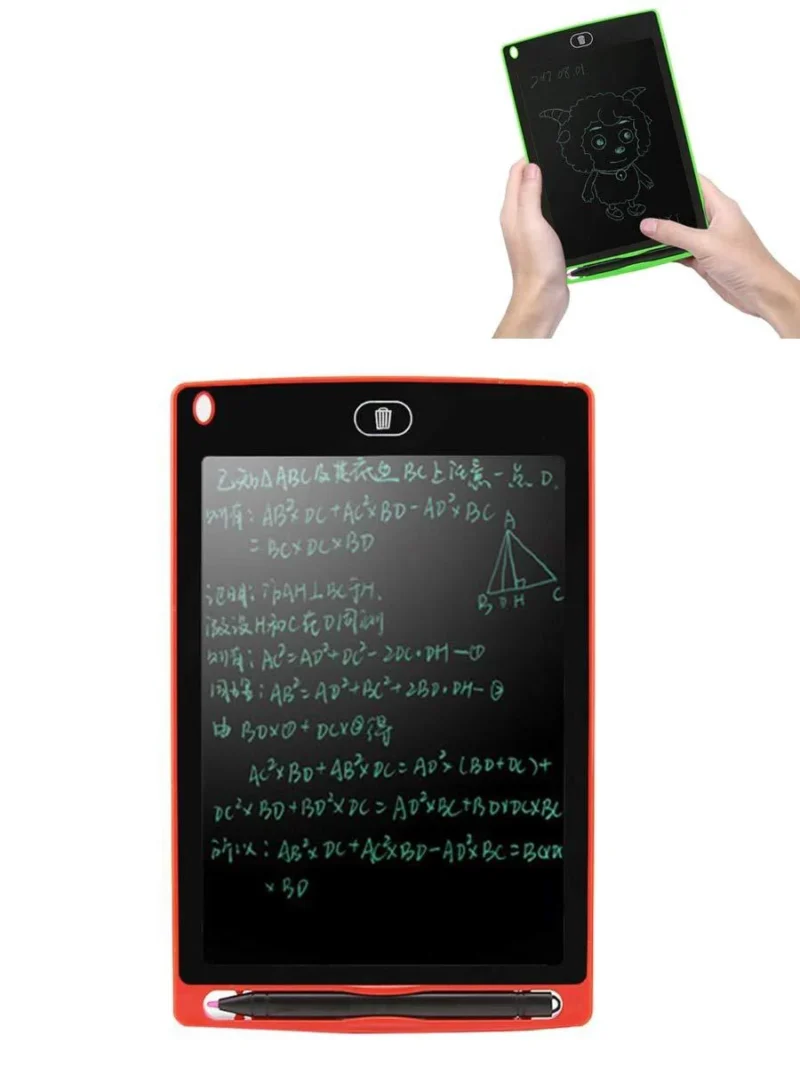 217 08 01
已知△ABC及其底边BC上任意一点D.
则有: AB²×DC+AC²×BD-AD²×BC
=BC×DC×BD
A
B D H C
证明: 作AH⊥BC于H.
假设H和C在D同侧
则有: AC²=AD²+DC²-2DC·DH—①
同理: AB²=AD²+BC²+2BD·DH—②
由BD×①+DC×②得
AC²×BD+AB²×DC=AD²×(BD+DC)+
DC²×BD+BD²×DC=AD²×BC+BD×DC×BC
所以: AB²×DC+AC²×BD-AD²×BC=BC×DC
×BD